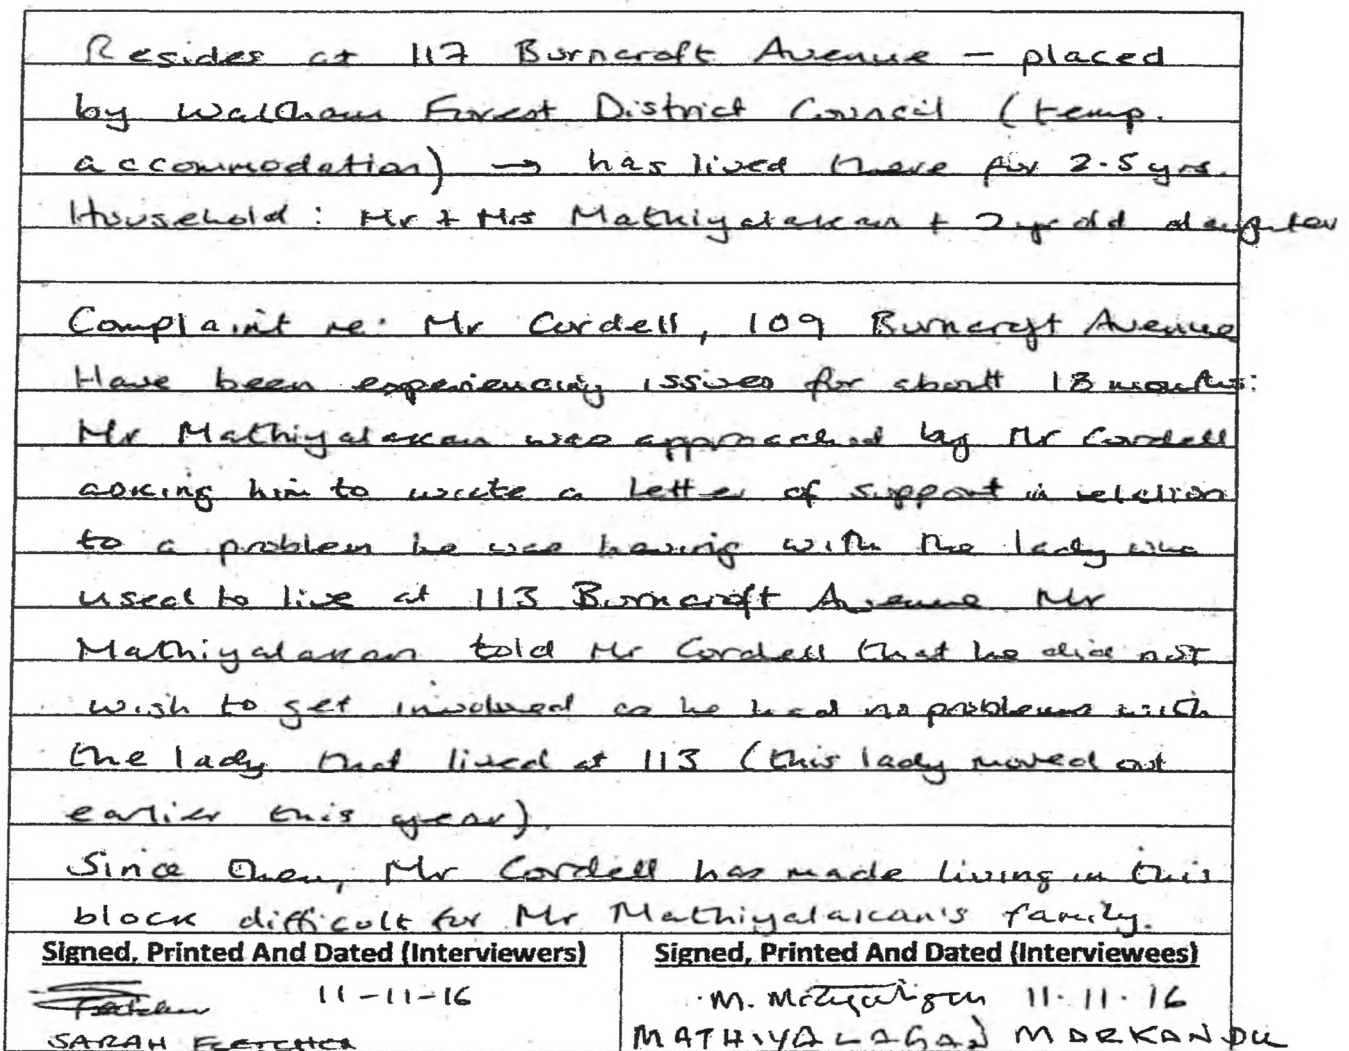 Resides at 117 Burncroft Avenue – placed
by Waltham Forest District Council (temp.
accommodation) → has lived there for 2.5 yrs.
Household: Mr + Mrs Mathiyalakan + 2 yr old daughter
Complaint re: Mr Cordell, 109 Burncroft Avenue
Have been experiencing issues for about 18 months:
Mr Mathiyalakan was approached by Mr Cordell
asking him to write a letter of support in relation
to a problem he was having with the lady who
used to live at 113 Burncroft Avenue Mr
Mathiyalakan told Mr Cordell that he did not
wish to get involved as he had no problems with
the lady that lived at 113 (this lady moved out
earlier this year).
Since then, Mr Cordell has made living in this
block difficult for Mr Mathiyalakan's family.
Signed, Printed And Dated (Interviewers)
Signed, Printed And Dated (Interviewees)
Fletcher 11-11-16
M. Mathiyalagan 11.11.16
SARAH FLETCHER
MATHIYALAGAN MARKANDU